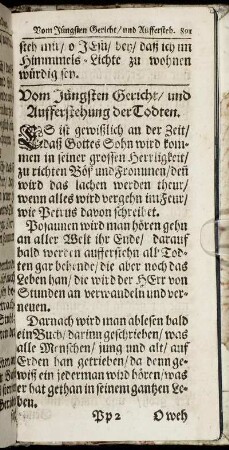 Vom Jüngsten Gericht/ und Aufferfteh. 801
steh mir/ o JEsu/ bey/ daß ich im
Himmels-Lichte zu wohnen
würdig sey.
Vom Jüngsten Gericht/ und
Aufferstehung der Todten.
ES ist gewißlich an der Zeit/
daß Gottes Sohn wird kom-
men in seiner grossen Herrligkeit/
zu richten Böß und Frommen/ deñ
wird das lachen werden theur/
wenn alles wird vergehn im Feur/
wie Petrus davon schreibet.
Posaunen wird man hören gehn
an aller Welt ihr Ende/ darauf
bald werden aufferstehn all Tod-
ten gar behende/ die aber noch das
Leben han/ die wird der HErr von
Stunden an verwandeln und ver-
neuen.
Darnach wird man ablesen bald
ein Buch/ darinn geschrieben/ was
alle Menschen/ jung und alt/ auf
Erden han getrieben/ da denn ge-
wiß ein jederman wird hören/ was
er hat gethan in seinem gantzen Le-
ben.
Pp 2 O weh